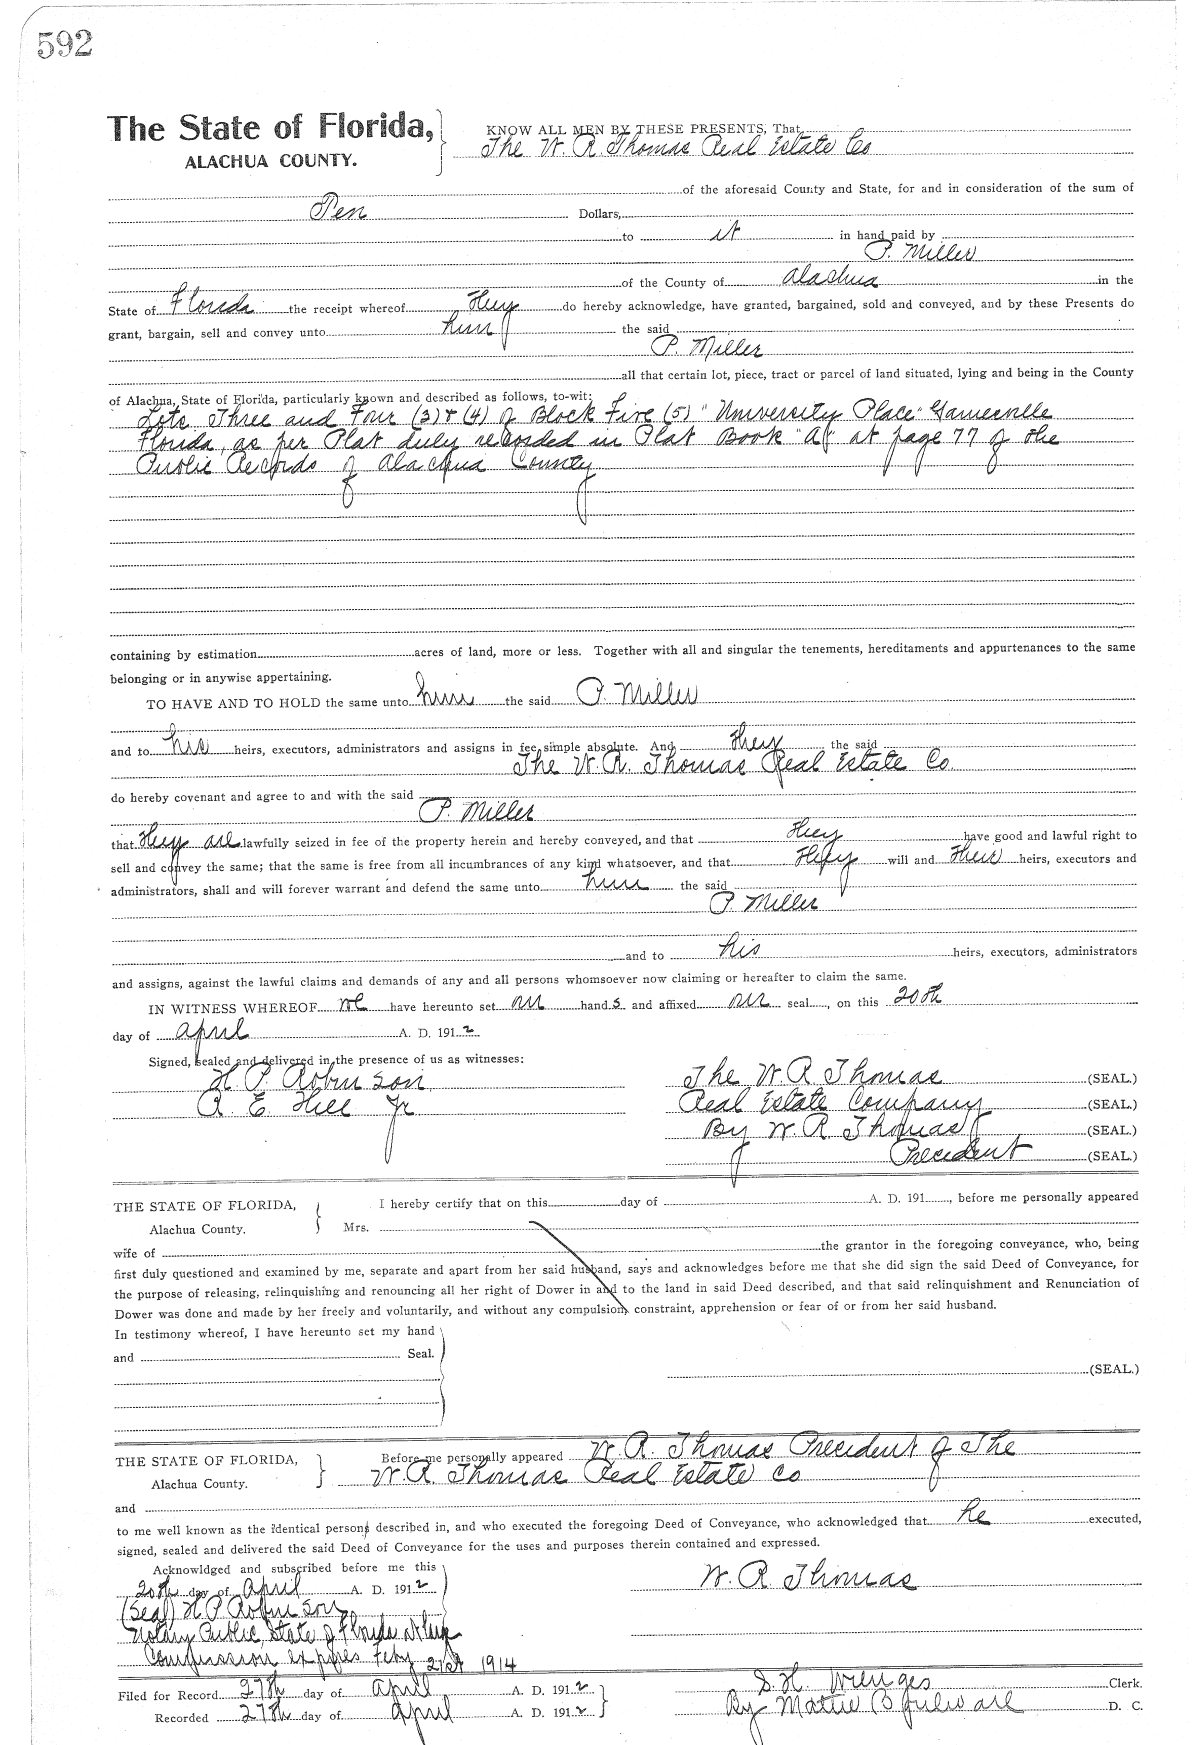 592
The State of Florida,
ALACHUA COUNTY.
KNOW ALL MEN BY THESE PRESENTS, That
The W. R. Thomas Real Estate Co
of the aforesaid County and State, for and in consideration of the sum of
Ten Dollars,
to it in hand paid by
P. Miller
of the County of Alachua in the
State of Florida the receipt whereof they do hereby acknowledge, have granted, bargained, sold and conveyed, and by these Presents do
grant, bargain, sell and convey unto him the said
P. Miller
all that certain lot, piece, tract or parcel of land situated, lying and being in the County
of Alachua, State of Florida, particularly known and described as follows, to-wit:
Lots Three and Four (3) & (4) of Block Five (5) "University Place" Gainesville
Florida, as per Plat duly recorded in Plat Book "A" at page 77 of the
Public Records of Alachua County
containing by estimation acres of land, more or less. Together with all and singular the tenements, hereditaments and appurtenances to the same
belonging or in anywise appertaining.
TO HAVE AND TO HOLD the same unto him the said P. Miller
and to his heirs, executors, administrators and assigns in fee simple absolute. And they the said
The W. R. Thomas Real Estate Co.
do hereby covenant and agree to and with the said
P. Miller
that they are lawfully seized in fee of the property herein and hereby conveyed, and that they have good and lawful right to
sell and convey the same; that the same is free from all incumbrances of any kind whatsoever, and that they will and their heirs, executors and
administrators, shall and will forever warrant and defend the same unto him the said
P. Miller
and to his heirs, executors, administrators
and assigns, against the lawful claims and demands of any and all persons whomsoever now claiming or hereafter to claim the same.
IN WITNESS WHEREOF we have hereunto set our hands and affixed our seal, on this 20th
day of April A. D. 1912
Signed, sealed and delivered in the presence of us as witnesses:
H P Robinson
R E Hill Jr
The W R Thomas (SEAL.)
Real Estate Company (SEAL.)
By W. R Thomas (SEAL.)
President (SEAL.)
THE STATE OF FLORIDA,
Alachua County.
I hereby certify that on this day of A. D. 191 , before me personally appeared
Mrs.
wife of the grantor in the foregoing conveyance, who, being
first duly questioned and examined by me, separate and apart from her said husband, says and acknowledges before me that she did sign the said Deed of Conveyance, for
the purpose of releasing, relinquishing and renouncing all her right of Dower in and to the land in said Deed described, and that said relinquishment and Renunciation of
Dower was done and made by her freely and voluntarily, and without any compulsion, constraint, apprehension or fear of or from her said husband.
In testimony whereof, I have hereunto set my hand
and Seal.
(SEAL.)
THE STATE OF FLORIDA,
Alachua County.
Before me personally appeared W. R. Thomas President of The
W. R. Thomas Real Estate Co
and
to me well known as the identical person described in, and who executed the foregoing Deed of Conveyance, who acknowledged that he executed,
signed, sealed and delivered the said Deed of Conveyance for the uses and purposes therein contained and expressed.
Acknowldged and subscribed before me this
20th day of April A. D. 1912
(Seal) H P Robinson
Notary Public, State of Florida at large
Commission expires Feby 21st 1914
W. R Thomas
Filed for Record 27th day of April A. D. 1912
Recorded 27th day of April A. D. 1912
S. H. Wienges Clerk.
By Mattie B D. C.